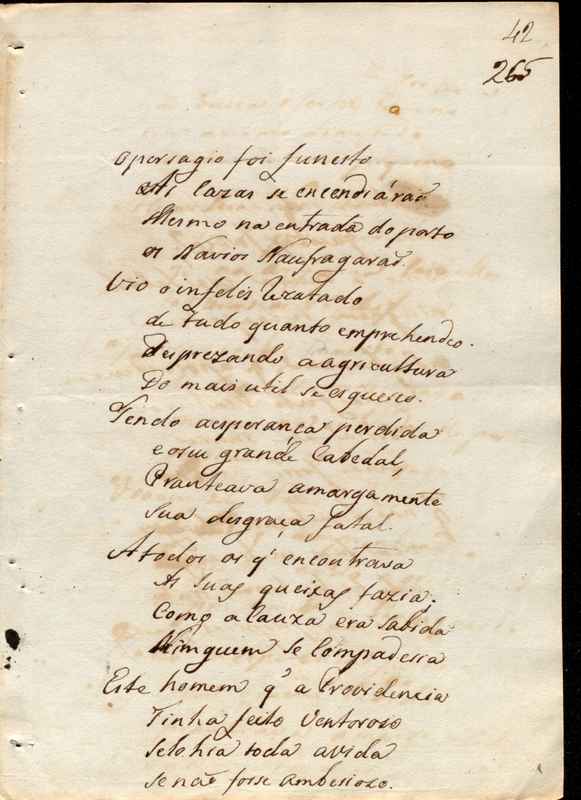 42
265
o persagio foi funesto
As Cazas se encendiárão.
Mesmo na entrada do porto
os Navios Naufragarão.
Vio o infelis
de tudo quanto emprehendeo.
Desprezando a agricultura
Do mais util se esqueceo.
Tendo a esperança perdida
e o seu grande Cabedal,
Pranteava amargamente
sua desgraça fatal.
A todos os q' encontrava
As suas queixas fazia,
Como a Cauza era sabida
Ninguem se Compadecia
Este homem q' a Providencia
Tinha feito Ventorozo
Selo hia toda a vida
se não fosse ambesiozo.